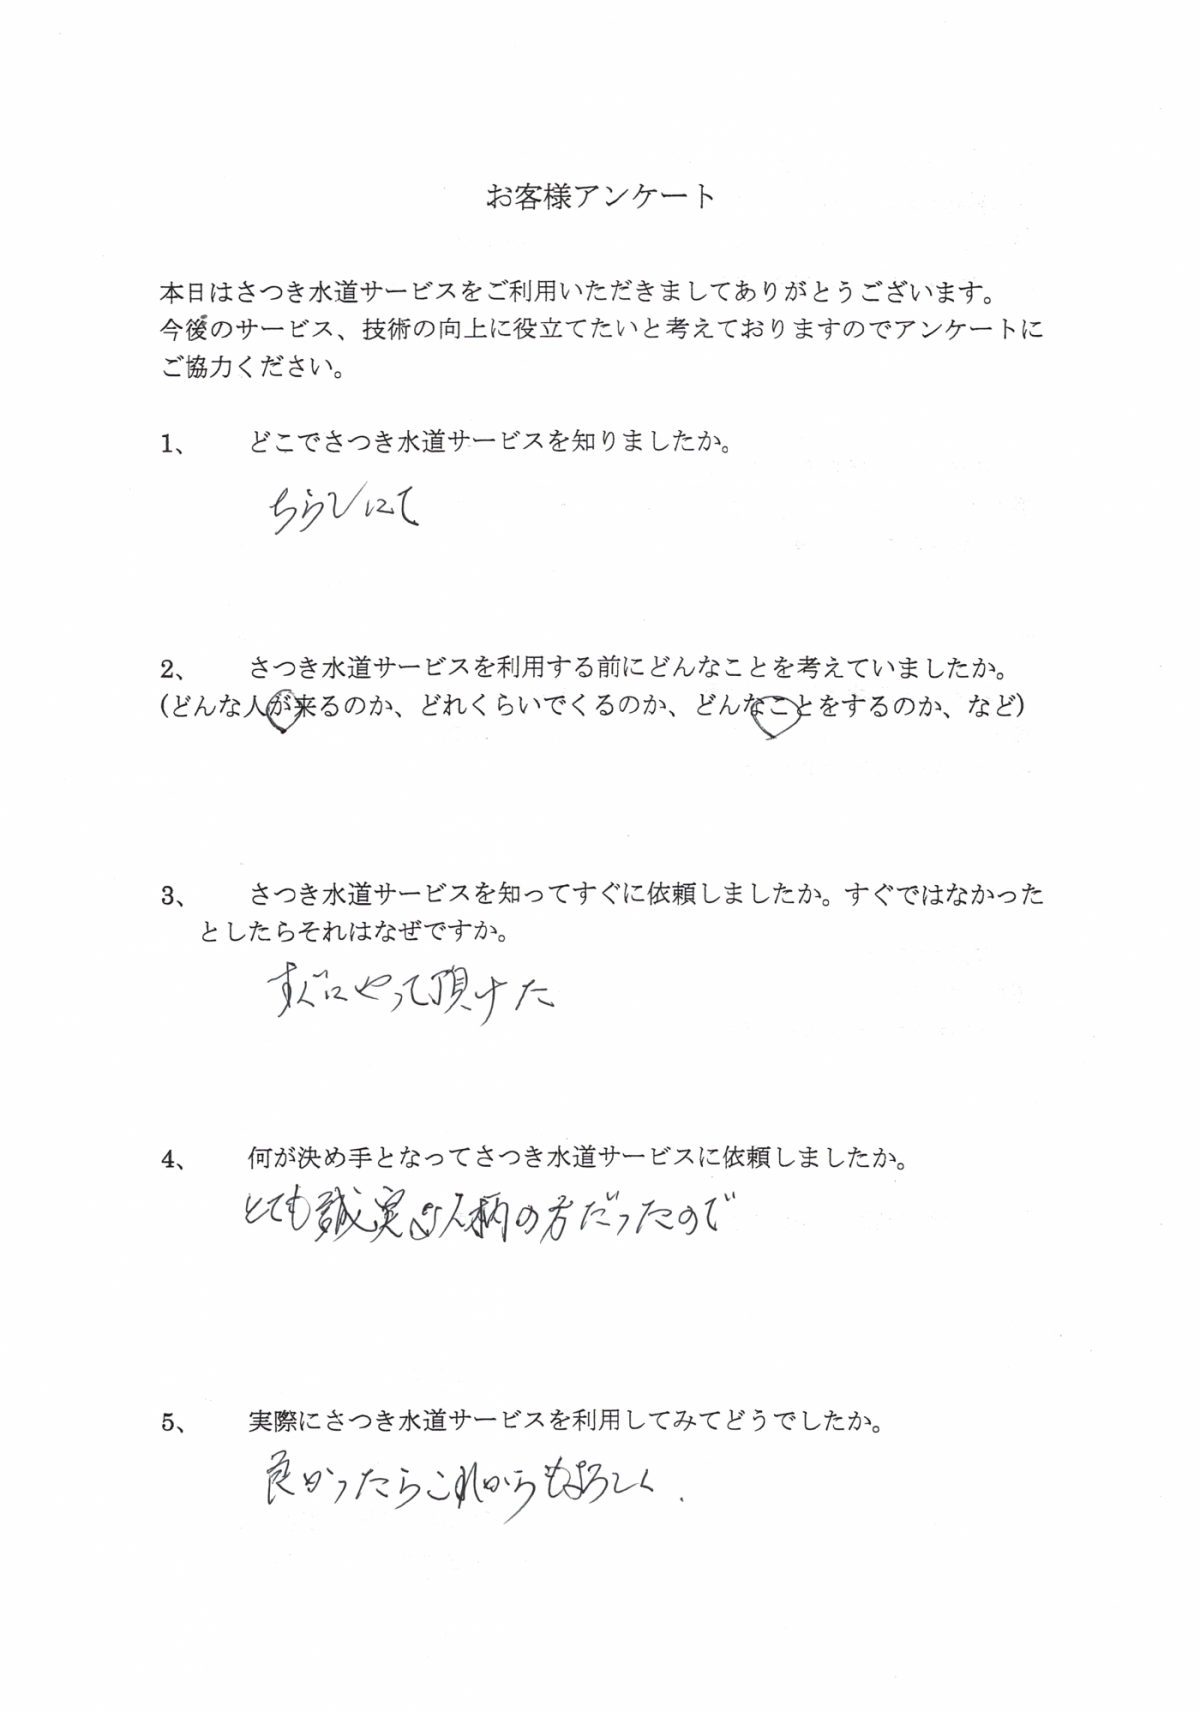 お客様アンケート
本日はさつき水道サービスをご利用いただきましてありがとうございます。
今後のサービス、技術の向上に役立てたいと考えておりますのでアンケートに
ご協力ください。
1、 どこでさつき水道サービスを知りましたか。
ちらしにて
2、 さつき水道サービスを利用する前にどんなことを考えていましたか。
(どんな人が来るのか、どれくらいでくるのか、どんなことをするのか、など)
3、 さつき水道サービスを知ってすぐに依頼しましたか。すぐではなかった
としたらそれはなぜですか。
すぐにやって頂けた
4、 何が決め手となってさつき水道サービスに依頼しましたか。
とても誠実な人柄の方だったので
5、 実際にさつき水道サービスを利用してみてどうでしたか。
良かったらこれからもよろしく.